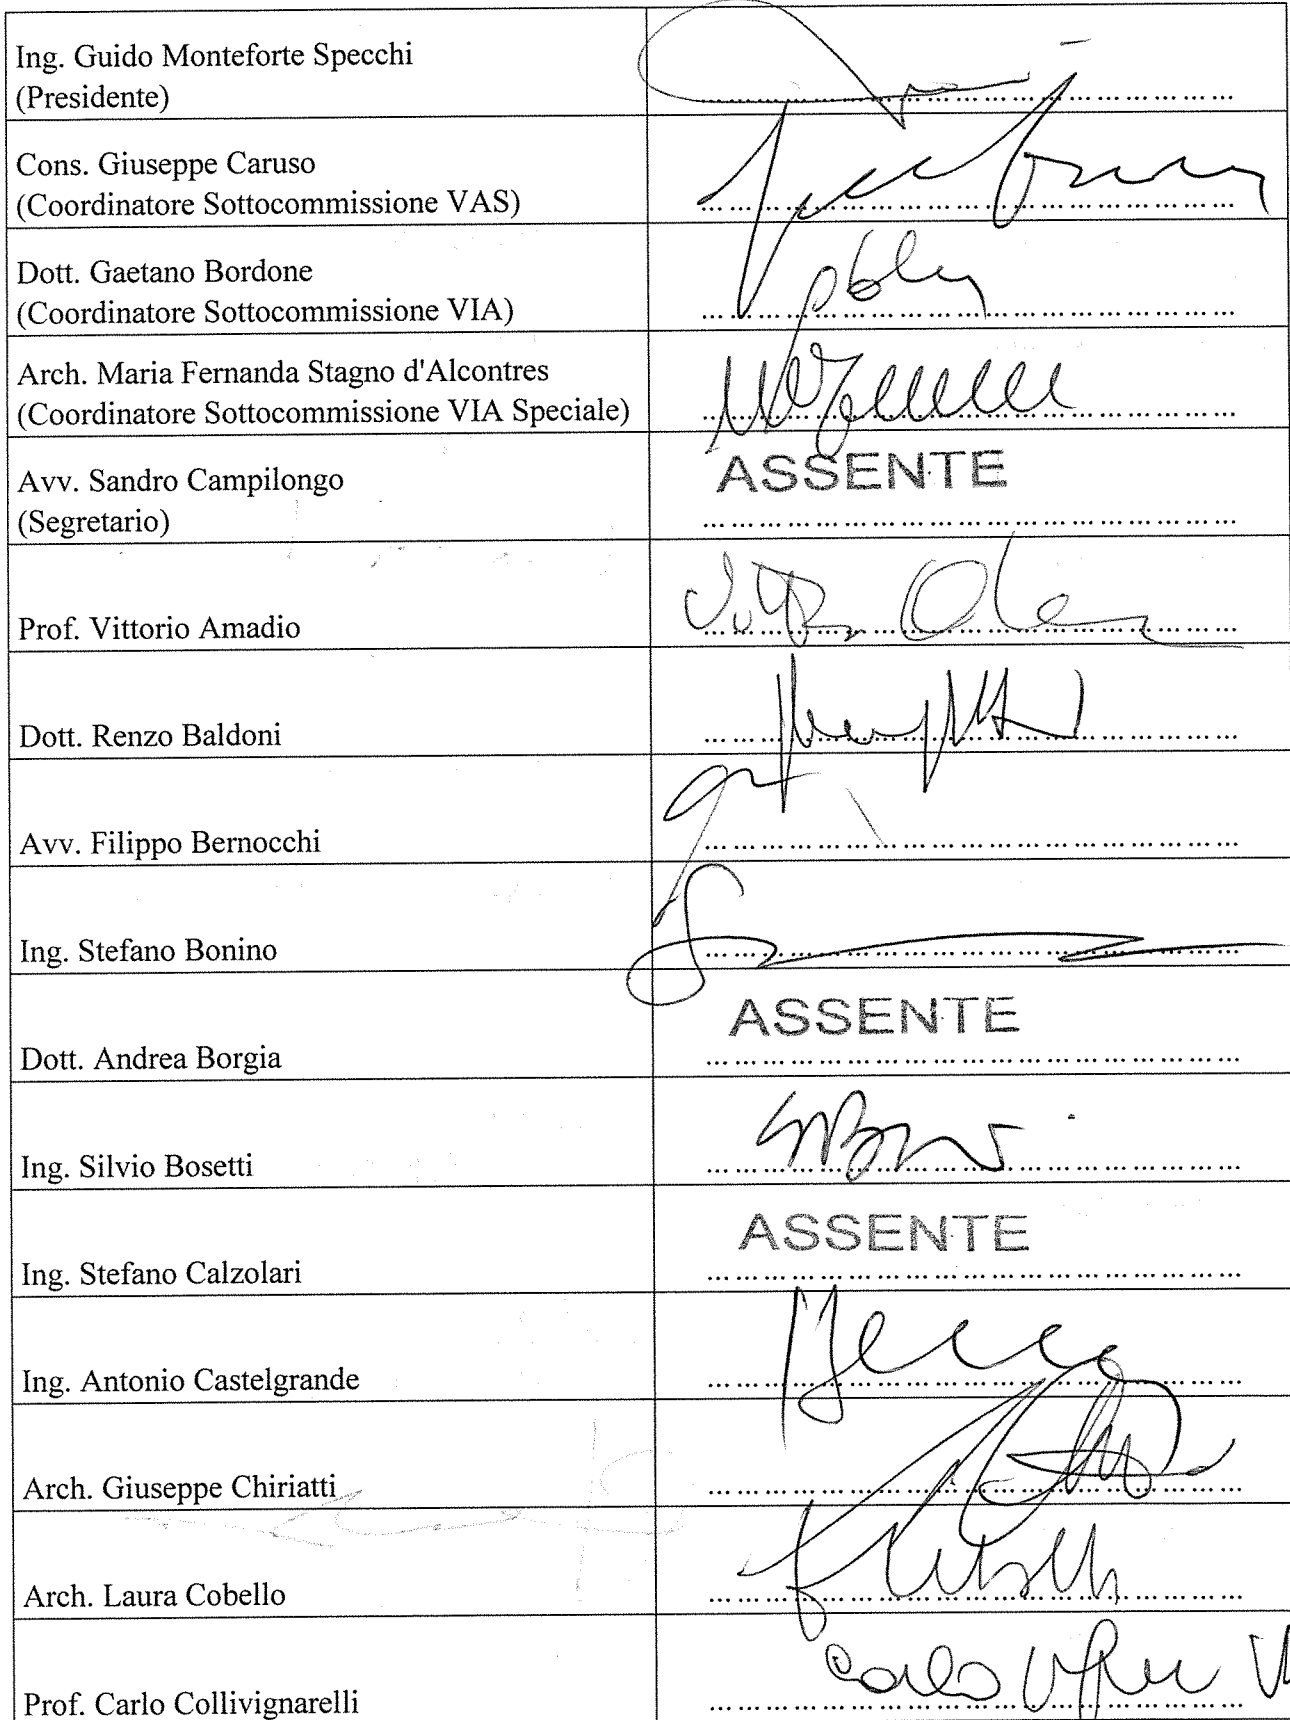 Ing. Guido Monteforte Specchi
(Presidente)
Cons. Giuseppe Caruso
(Coordinatore Sottocommissione VAS)
Dott. Gaetano Bordone
(Coordinatore Sottocommissione VIA)
Arch. Maria Fernanda Stagno d'Alcontres
(Coordinatore Sottocommissione VIA Speciale)
Avv. Sandro Campilongo
(Segretario)
ASSENTE
Prof. Vittorio Amadio
Dott. Renzo Baldoni
Avv. Filippo Bernocchi
Ing. Stefano Bonino
Dott. Andrea Borgia
ASSENTE
Ing. Silvio Bosetti
Ing. Stefano Calzolari
ASSENTE
Ing. Antonio Castelgrande
Arch. Giuseppe Chiriatti
Arch. Laura Cobello
Prof. Carlo Collivignarelli